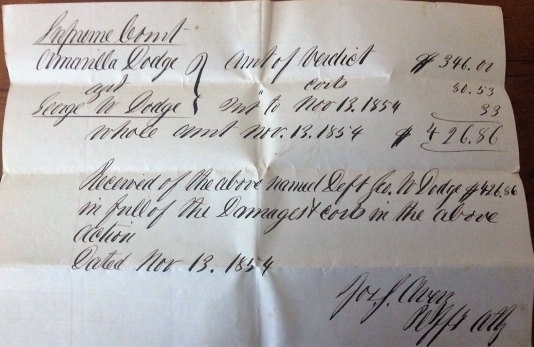 Supreme Court
Amarilla Dodge } Amt of Verdict $ 346.00
agt costs 80.53
George W Dodge } Int" to Nov 13. 1854 33
whole amt Nov. 13. 1854 $ 426.86
Received of the above named Deft Geo. W Dodge $426.86
in full of the Damages & costs in the above
action
Dated Nov 13. 1854
Jos. J.
Plffs Atty